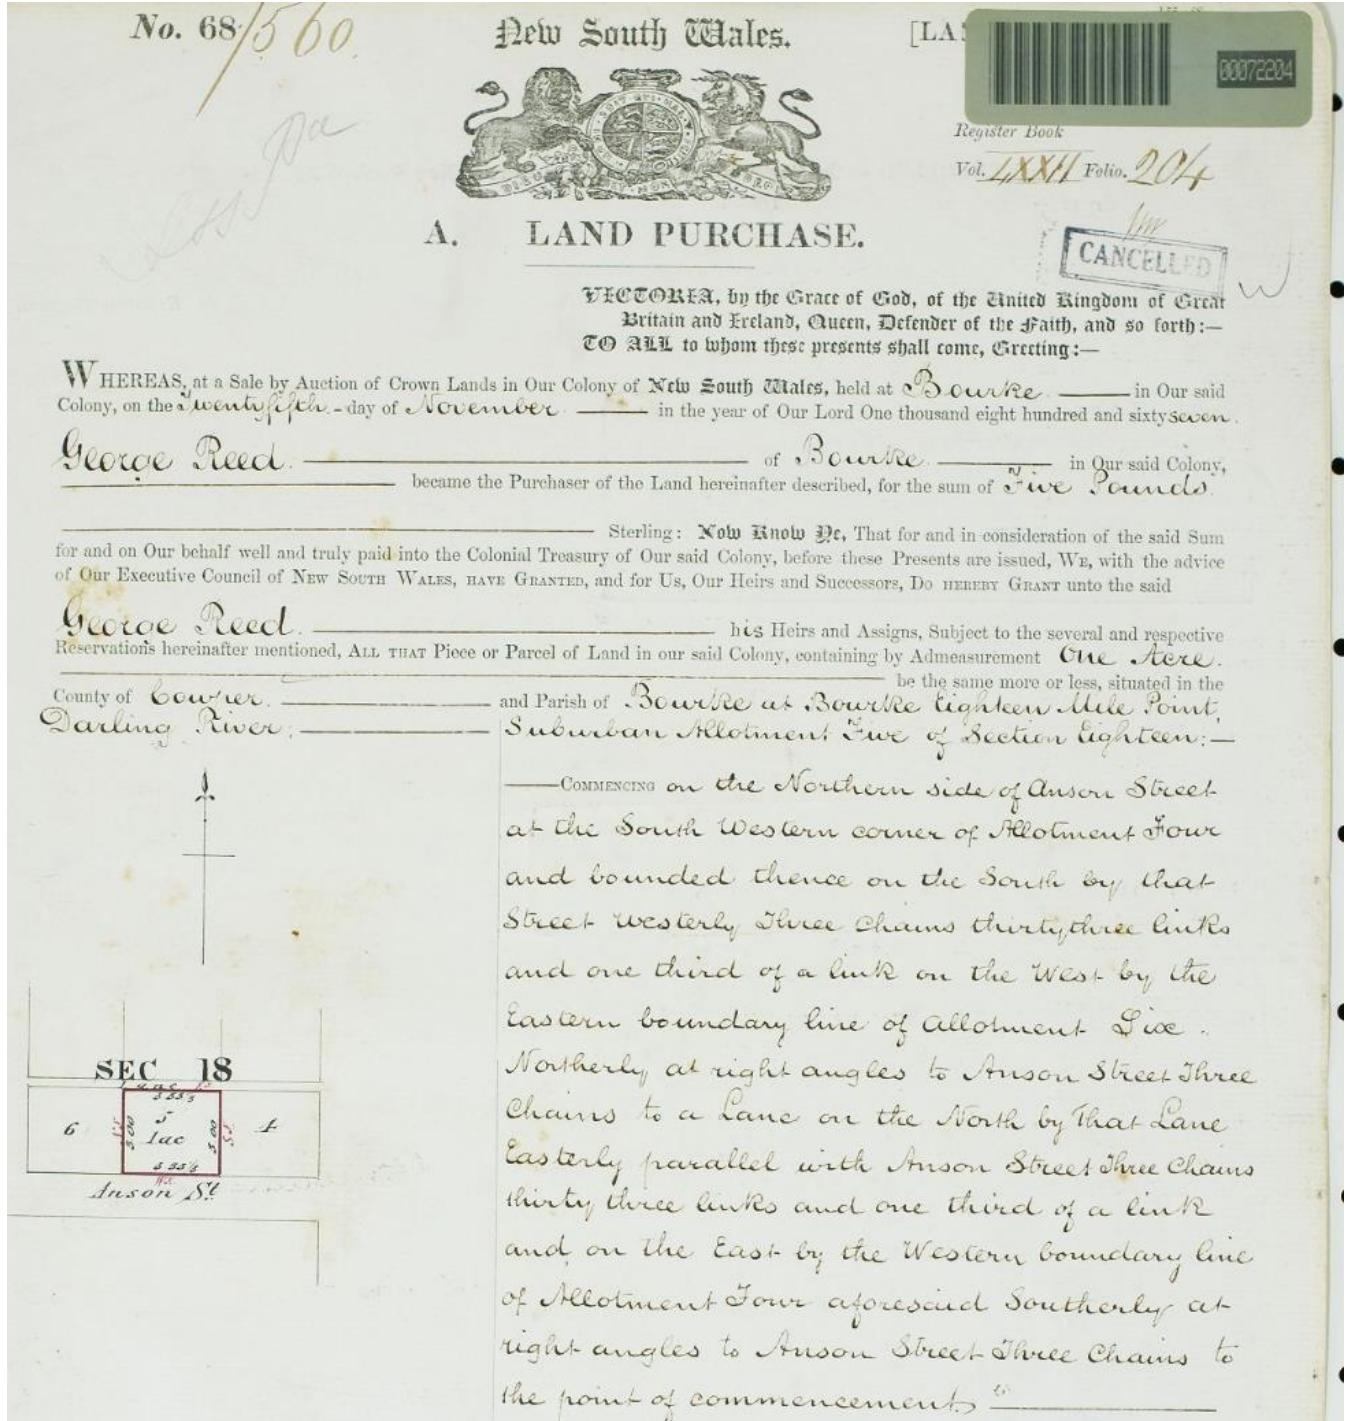 No. 68/560.
New South Wales.
[LA
00072204
Register Book
Vol. LXXII Folio. 204
CANCELLED
A. LAND PURCHASE.
VICTORIA, by the Grace of God, of the United Kingdom of Great
Britain and Ireland, Queen, Defender of the Faith, and so forth:—
TO ALL to whom these presents shall come, Greeting:—
WHEREAS, at a Sale by Auction of Crown Lands in Our Colony of New South Wales, held at Bourke in Our said
Colony, on the Twentyfifth day of November in the year of Our Lord One thousand eight hundred and sixty seven.
George Reed. of Bourke in Our said Colony,
became the Purchaser of the Land hereinafter described, for the sum of Five Pounds
Sterling: Now Know Ye, That for and in consideration of the said Sum
for and on Our behalf well and truly paid into the Colonial Treasury of Our said Colony, before these Presents are issued, WE, with the advice
of Our Executive Council of NEW SOUTH WALES, HAVE GRANTED, and for Us, Our Heirs and Successors, DO HEREBY GRANT unto the said
George Reed. his Heirs and Assigns, Subject to the several and respective
Reservations hereinafter mentioned, ALL THAT Piece or Parcel of Land in our said Colony, containing by Admeasurement One Acre.
be the same more or less, situated in the
County of Cowper. and Parish of Bourke at Bourke Eighteen Mile Point,
Darling River; Suburban Allotment Five of Section Eighteen:—
COMMENCING on the Northern side of Anson Street
at the South Western corner of Allotment Four
and bounded thence on the South by that
Street Westerly Three Chains thirtythree links
and one third of a link on the West by the
Eastern boundary line of Allotment Six.
Northerly at right angles to Anson Street Three
Chains to a Lane on the North by that Lane
Easterly parallel with Anson Street Three Chains
thirty three links and one third of a link
and on the East by the Western boundary line
of Allotment Four aforesaid Southerly at
right angles to Anson Street Three Chains to
the point of commencement.
SEC 18
Lane
3 33⅓
6
3 00
5
1ac
3 00
4
3 33⅓
Anson St.